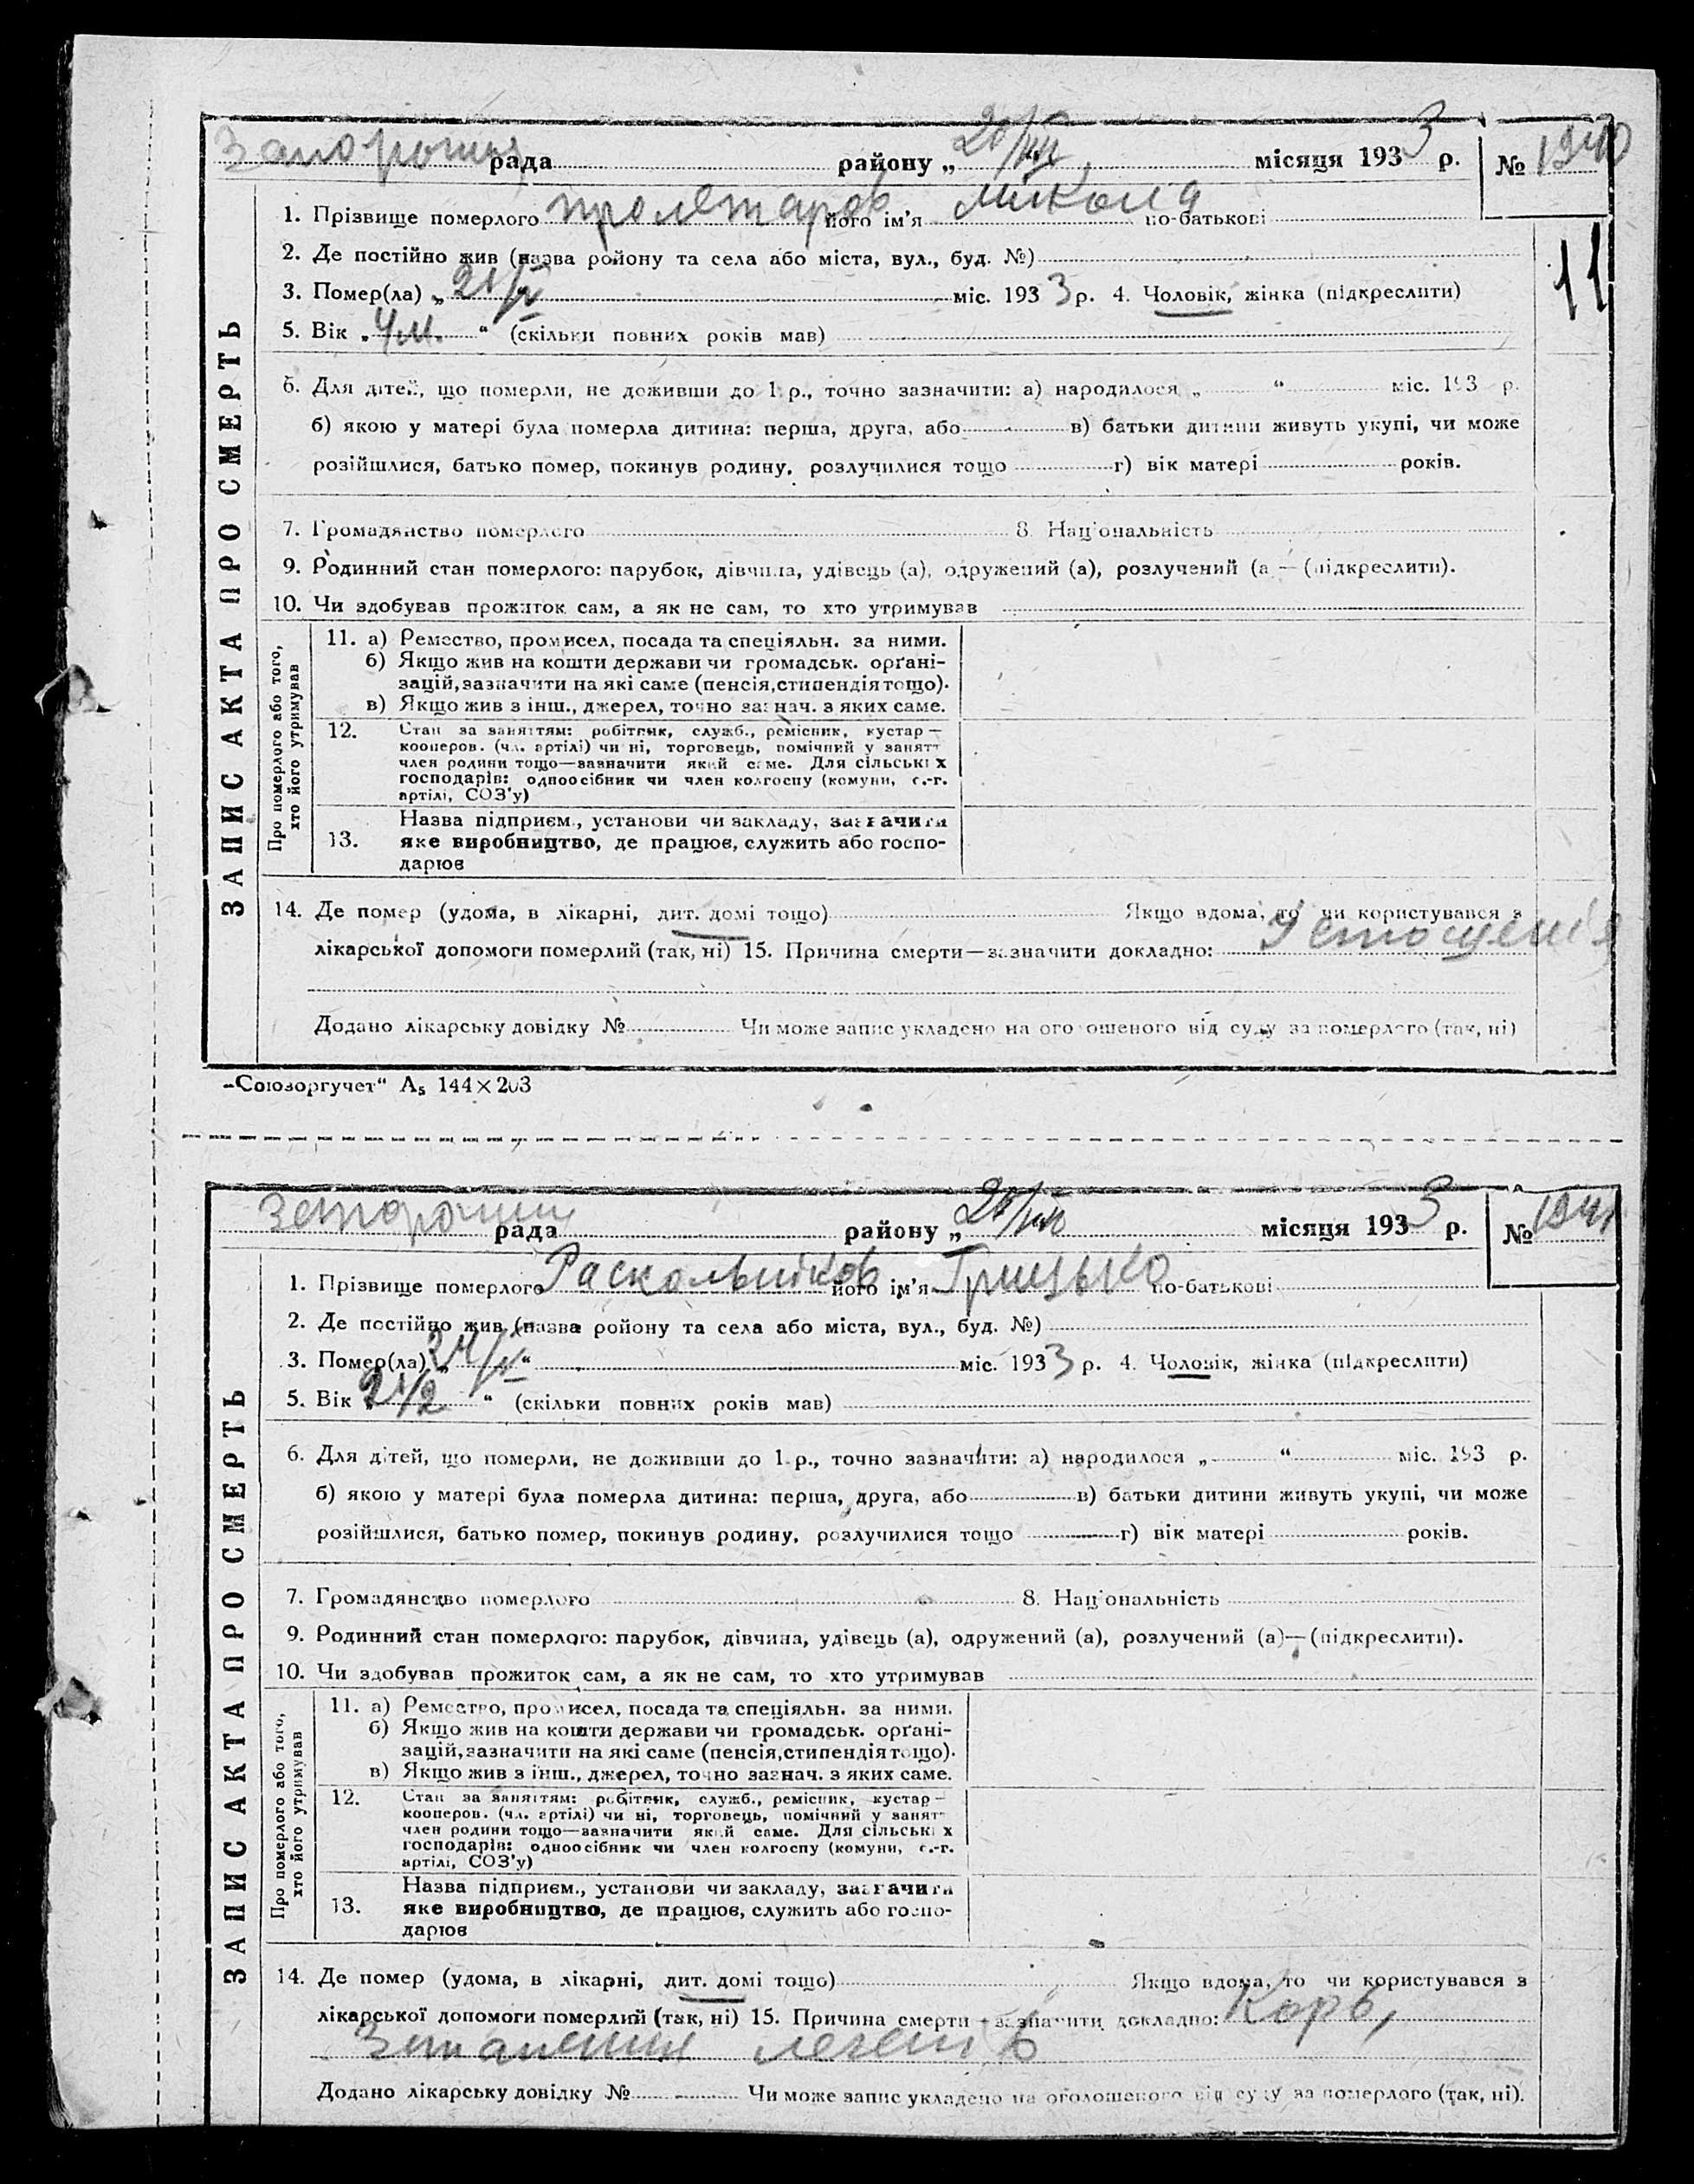 Запоріжжя рада району „ 20/VII місяця 1933 р. № 1940
1. Прізвище померлого Пролетаров його ім’я Микола по-батькові
11
2. Де постійно жив (назва ройону та села або міста, вул., буд. №)
3. Помер(ла) „ 21/V “ міс. 1933 р. 4. Чоловік, жінка (підкреслити)
5. Вік „ 4 м. “ (скільки повних років мав)
6. Для дітей, що померли, не доживши до 1 р., точно зазначити: а) народилося „ “ міс. 193 р.
б) якою у матері була померла дитина: перша, друга, або в) батьки дитини живуть укупі, чи може
розійшлися, батько помер, покинув родину, розлучилися тощо г) вік матері років.
7. Громадянство померлого 8. Національність
9. Родинний стан померлого: парубок, дівчина, удівець (а), одружений (а), розлучений (а — (підкреслити).
10. Чи здобував прожиток сам, а як не сам, то хто утримував
ЗАПИС АКТА ПРО СМЕРТЬ
Про померлого або того,
хто його утримував
11. а) Ремество, промисел, посада та спеціяльн. за ними.
б) Якщо жив на кошти держави чи громадськ. орґані-
зацій, зазначити на які саме (пенсія, стипендія тощо).
в) Якщо жив з інш., джерел, точно зазнач. з яких саме.
12. Стан за заняттям: робітник, служб., ремісник, кустар —
кооперов. (чл. артілі) чи ні, торговець, помічний у занятт
член родини тощо—зазначити який саме. Для сільських
господарів: одноосібник чи член колгоспу (комуни, с.-г.
артілі, СОЗ’у)
13. Назва підприєм., установи чи закладу, зазначити
яке виробництво, де працює, служить або госпо-
дарює
14. Де помер (удома, в лікарні, дит. домі тощо) Якщо вдома, то чи користувався з
лікарської допомоги померлий (так, ні) 15. Причина смерти—зазначити докладно: Істощенія
Додано лікарську довідку № Чи може запис укладено на оголошеного від суду за померлого (так, ні)
„Союзоргучет“ А5 144×203
рада району „ 20/VII місяця 1933 р. № 1941
1. Прізвище померлого Раскольніков його ім’я Грицько по-батькові
2. Де постійно жив (назва ройону та села або міста, вул., буд. №)
3. Помер(ла) „ 24/V “ міс. 1933 р. 4. Чоловік, жінка (підкреслити)
5. Вік „ 2 1/2 “ (скільки повних років мав)
6. Для дітей, що померли, не доживши до 1 р., точно зазначити: а) народилося „ “ міс. 193 р.
б) якою у матері була померла дитина: перша, друга, або в) батьки дитини живуть укупі, чи може
розійшлися, батько помер, покинув родину, розлучилися тощо г) вік матері років.
7. Громадянство померлого 8. Національність
9. Родинний стан померлого: парубок, дівчина, удівець (а), одружений (а), розлучений (а)—(підкреслити).
10. Чи здобував прожиток сам, а як не сам, то хто утримував
ЗАПИС АКТА ПРО СМЕРТЬ
Про померлого або того,
хто його утримував
11. а) Ремество, промисел, посада та спеціяльн. за ними.
б) Якщо жив на кошти держави чи громадськ. орґані-
зацій, зазначити на які саме (пенсія, стипендія тощо).
в) Якщо жив з інш., джерел, точно зазнач. з яких саме.
12. Стан за заняттям: робітник, служб., ремісник, кустар —
кооперов. (чл. артілі) чи ні, торговець, помічний у занятт
член родини тощо—зазначити який саме. Для сільських
господарів: одноосібник чи член колгоспу (комуни, с.-г.
артілі, СОЗ’у)
13. Назва підприєм., установи чи закладу, зазначити
яке виробництво, де працює, служить або госпо-
дарює
14. Де помер (удома, в лікарні, дит. домі тощо) Якщо вдома, то чи користувався з
лікарської допомоги померлий (так, ні) 15. Причина смерти — зазначити докладно: Корь,
Запалення легенів
Додано лікарську довідку № Чи може запис укладено на оголошеного від суду за померлого (так, ні).